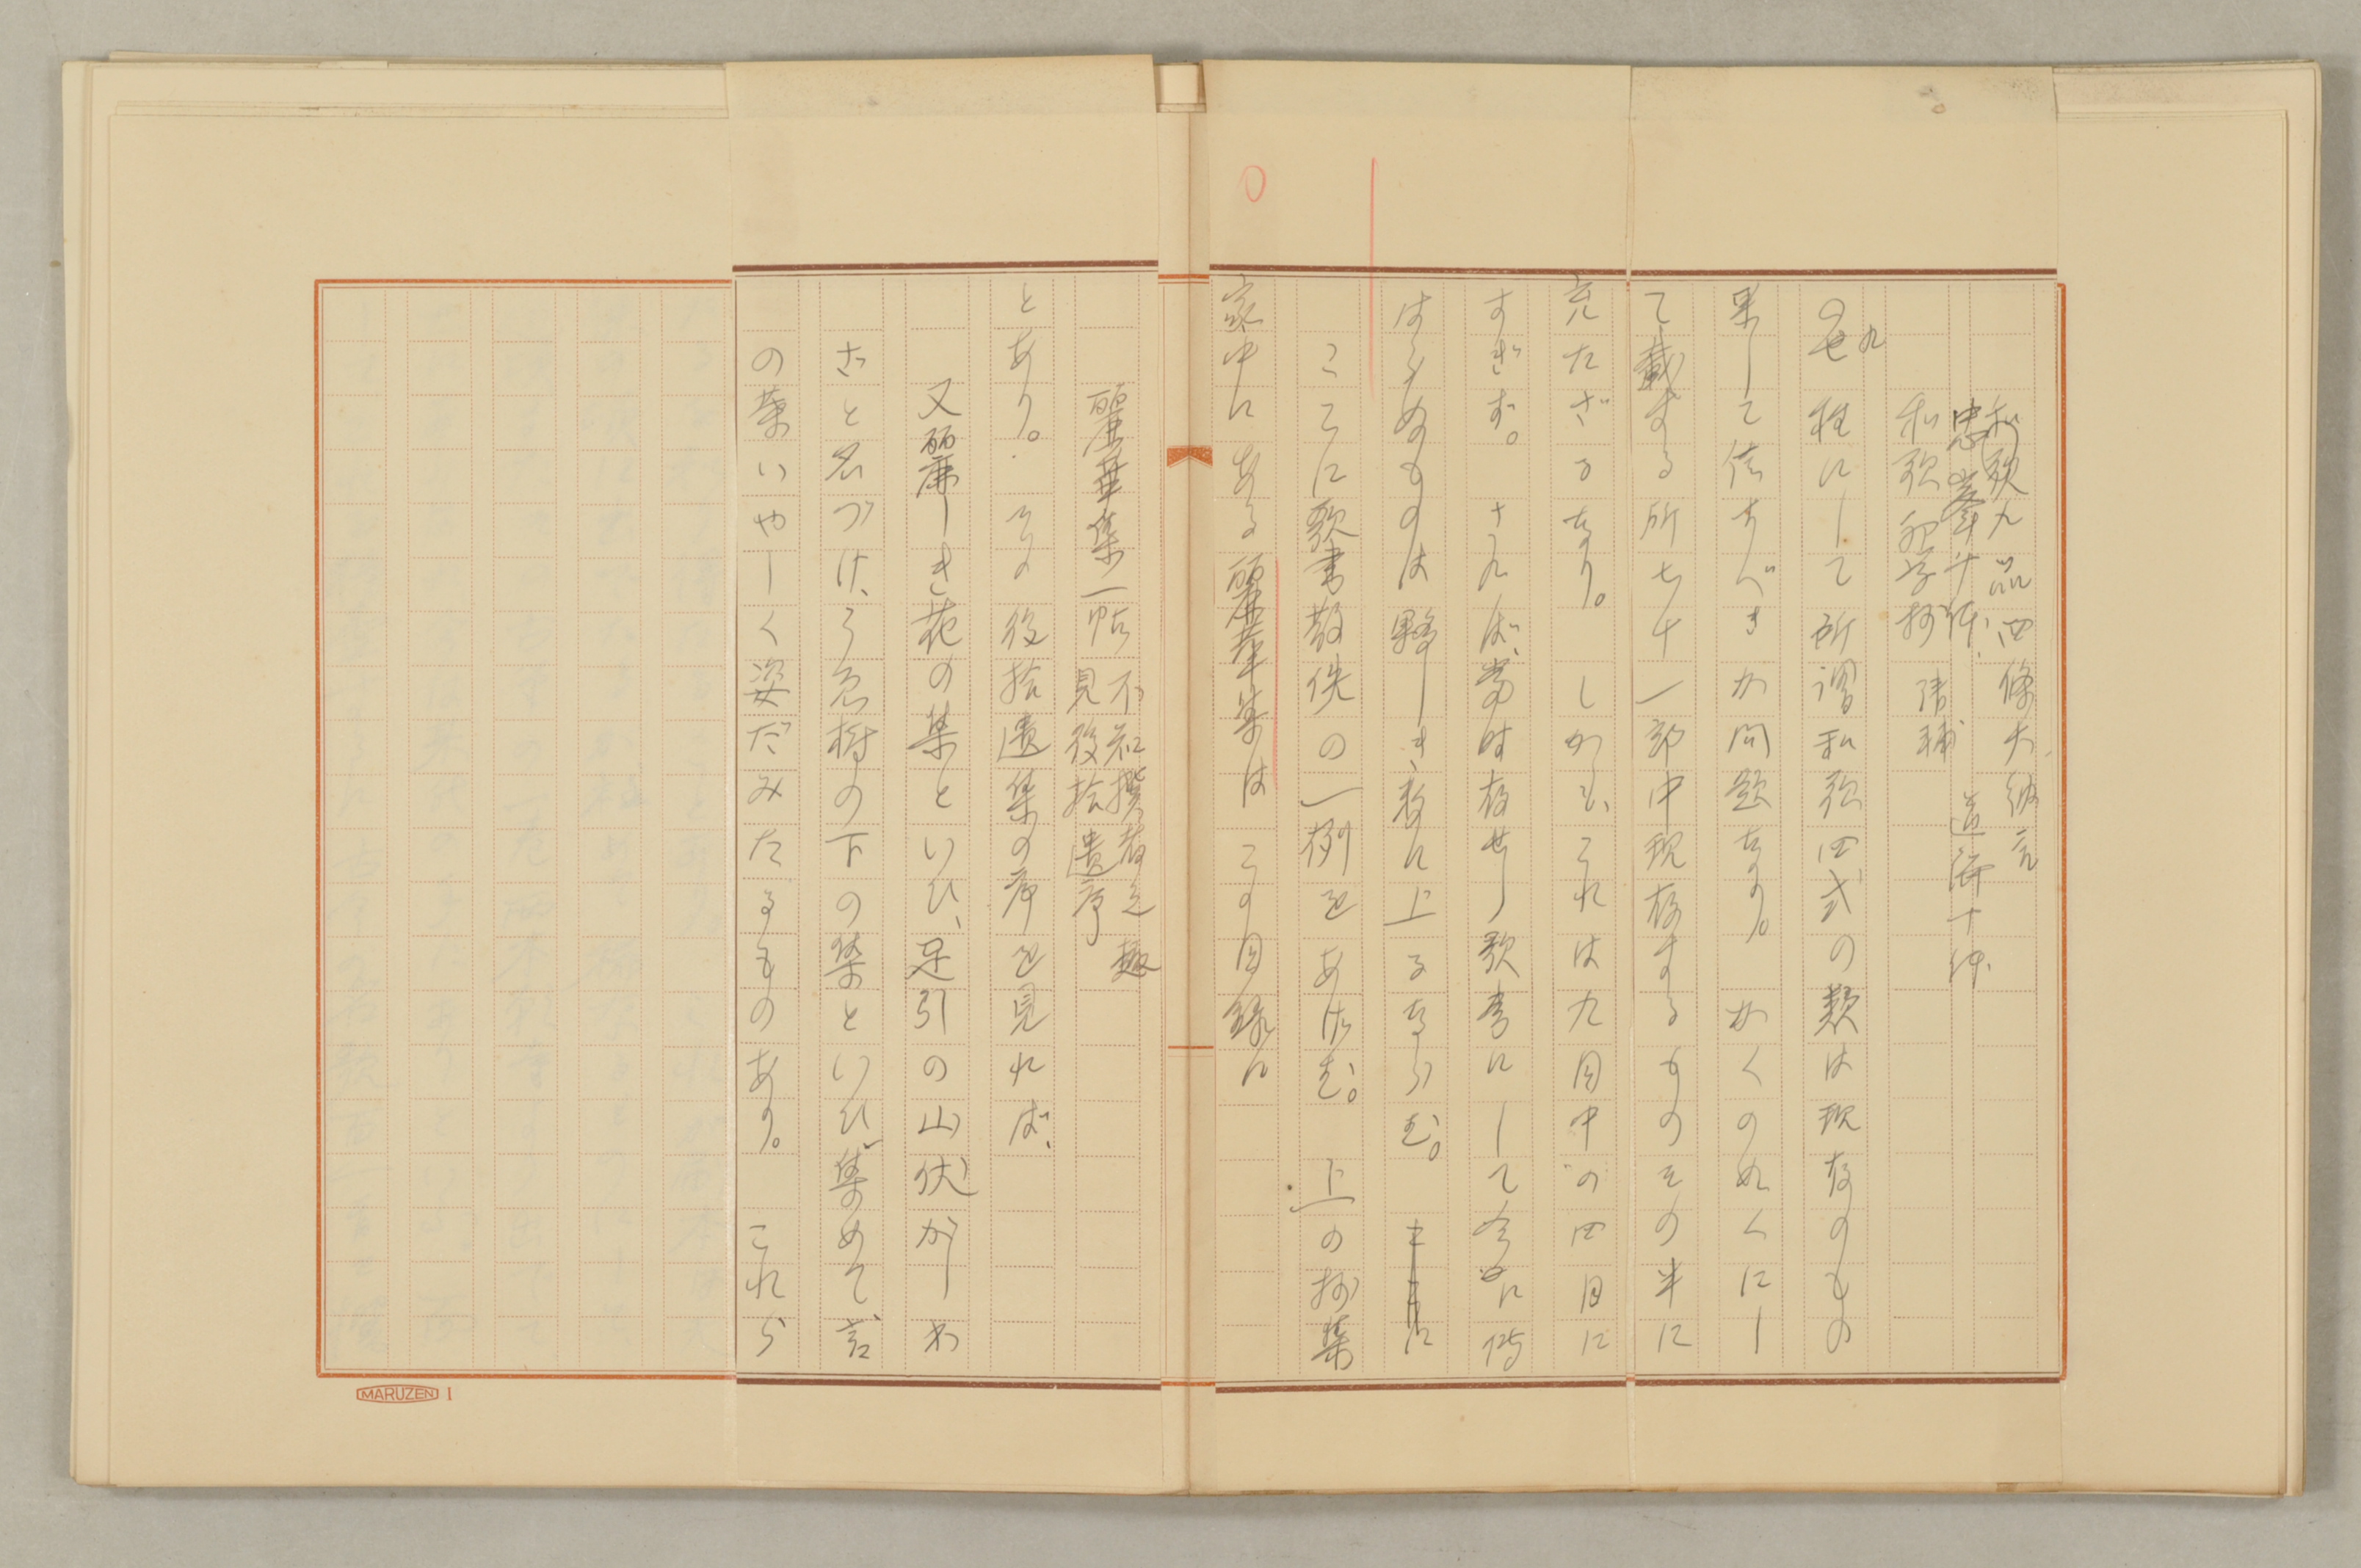 和歌九品 四條大納言
忠岑十体 道済十体
和歌初学抄 清輔
の九種にして所謂和歌四式の類は現存のもの
果して信ずべきか問題なり。かくの如くにし
て載する所七十一部中現存するものその半に
充たざるなり。しかも、これは九目中の四目に
すぎず。されば、当時存せし歌書にして今に伝
はらぬものは夥しき数に上るならむ。
ここに歌書散佚の一例をあげむ。上の抄集
家中にある麗華集はこの目録に
麗華集一帖 不知撰者之趣
見後拾遺序
とあり。その後拾遺集の序を見れば、
又麗しき花の集といひ、足引の山伏がしわ
ざと名づけ、うゑ樹の下の集といひ、集めて言
の葉いやしく姿だみたるものあり。これら
MARUZEN 1